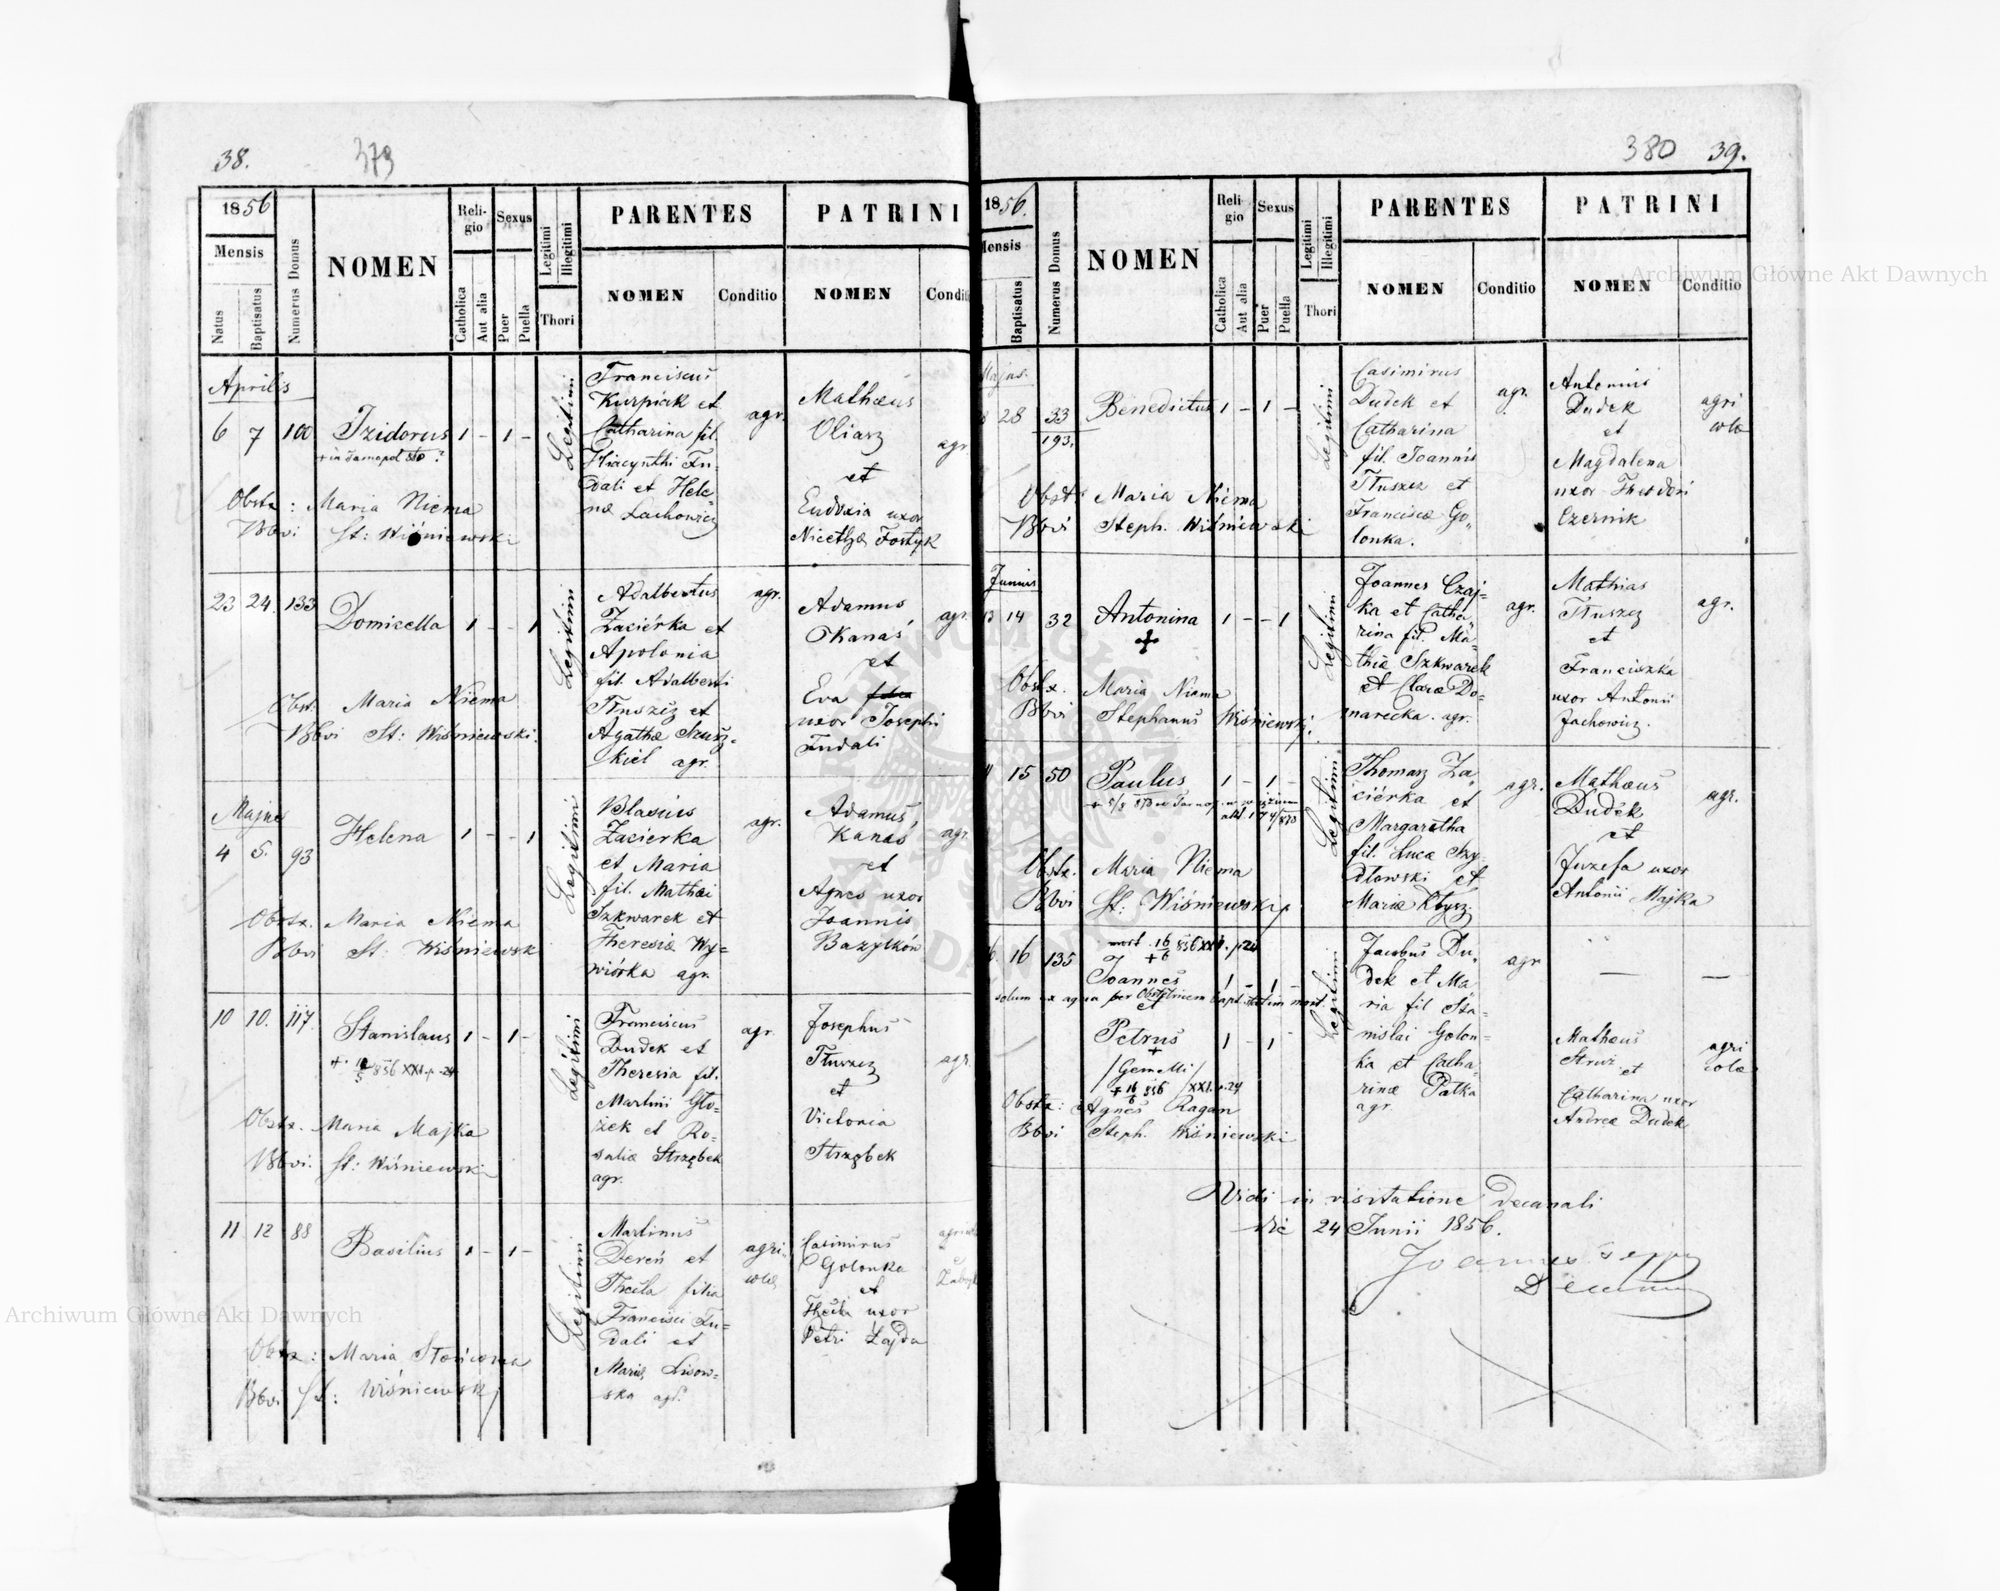 38.
379
1856
Mensis
Natus
Baptisatus
Numerus Domus
NOMEN
Reli-
gio
Catholica
Aut alia
Sexus
Puer
Puella
Legitimi
Illegitimi
Thori
PARENTES
NOMEN
Conditio
PATRINI
NOMEN
Conditi
Aprilis
6 7 100 Izidorus 1 - 1 -
Legitimi
Franciscus
Kurpiak et
Catharina fil.
Hiacynthi Fu-
dali et Hele-
na Lachowicz
agr.
Mathæus
Oliarz
et
Eudoxia uxor
Nicetha Fostyk
agr.
Obstx: Maria Niema
Bbvi St: Wiśniewski
23 24. 133 Domicella 1 - - 1
Legitimi
Adalbertus
Zacierka et
Apolonia
fil. Adalberti
Tłuszcz et
Agatha
agr.
agr.
Adamus
Kanaś
et
Eva
uxor Josephi
Fudali
agr.
Obst. Maria Niema
Bbvi St: Wiśniewski.
Majus
4 5. 93 Helena 1 - - 1
Legitimi
Blasius
Zacierka
et Maria
fil. Mathæi
Szkwarek et
Theresiæ Wy-
wiórka agr.
agr.
Adamus
Kanaś
et
Agnes uxor
Joannis
agr.
Obstx. Maria Niema
Bbvi St: Wiśniewsk
10 10. 117. Stanislaus 1 - 1 -
856 XXI p. 24
Legitimi
Franciscus
Dudek et
Theresia fil.
Martini Gło-
zek et Ro-
saliæ Strzębek
agr.
agr.
Josephus
Tłuszcz
et
Victoria
Strzębek
agr.
Obstx. Maria Majka
Bbvi. St: Wiśniewski
11 12 88 Basilius 1 - 1 -
Legitimi
Martinus
Dereń et
Thecla filia
Francisci Fu-
dali et
Mariæ Lisow-
ska agr.
agri-
colæ
Casimirus
Golonka
et
Thecla uxor
Petri Zajda
Obstx: Maria
Bbvi St: Wiśniewski
380 39.
1856.
Mensis
Baptisatus
Numerus Domus
NOMEN
Reli-
gio
Catholica
Aut alia
Sexus
Puer
Puella
Legitimi
Illegitimi
Thori
PARENTES
NOMEN
Conditio
PATRINI
NOMEN
Conditio
Majus.
28 33 Benedictus 1 - 1 -
193.
Legitimi
Casimirus
Dudek et
Catharina
fil. Joannis
Tłuszcz et
Franciscæ Go-
lonka.
agr.
Antonius
Dudek
et
Magdalena
uxor Theodori
Czernik
agri
colæ
Obst: Maria Niema
Bbvi Steph. Wiśniewski
Junius
14 32 Antonina 1 - - 1
Legitimi
Joannes Czaj-
ka et Catha-
rina fil. Ma-
thiæ Szkwarek
et Claræ Do-
narecka. agr.
agr.
Mathias
Tłuszcz
et
Franciszka
uxor Antonii
Jachowicz.
agr.
Obstx. Maria Niema
Bbvi Stephanus Wiśniewski.
15 50 Paulus 1 - 1 -
Legitimi
Thomas Za-
cierka et
Margaretha
fil. Lucæ Szy-
dłowski et
Mariæ Kłysz
agr.
Mathæus
Dudek
et
Juzefa uxor
Antonii Majka
agr.
Obstx. Maria Niema
Bbvi St: Wiśniewski
16 135 Joannes 1 - 1 -
solum ex aqua per Obstetricem bapt. statim mort.
et
Petrus 1 - 1
/Gemelli/
XXI. p. 24
Legitimi
Jacobus Du-
dek et Ma-
ria fil Sta-
nislai Golon-
ka et Catha-
rinæ Pałka
agr.
agr
Mathæus
Struz et
Catharina uxor
Andreæ Dudek
agri
colæ
Obstx: Agnes Ragan
Bbvi Steph. Wiśniewski
Vidi in visitatione Decanali
die 24 Junii 1856.
Joannes
Archiwum Główne Akt Dawnych
Archiwum Główne Akt Dawnych